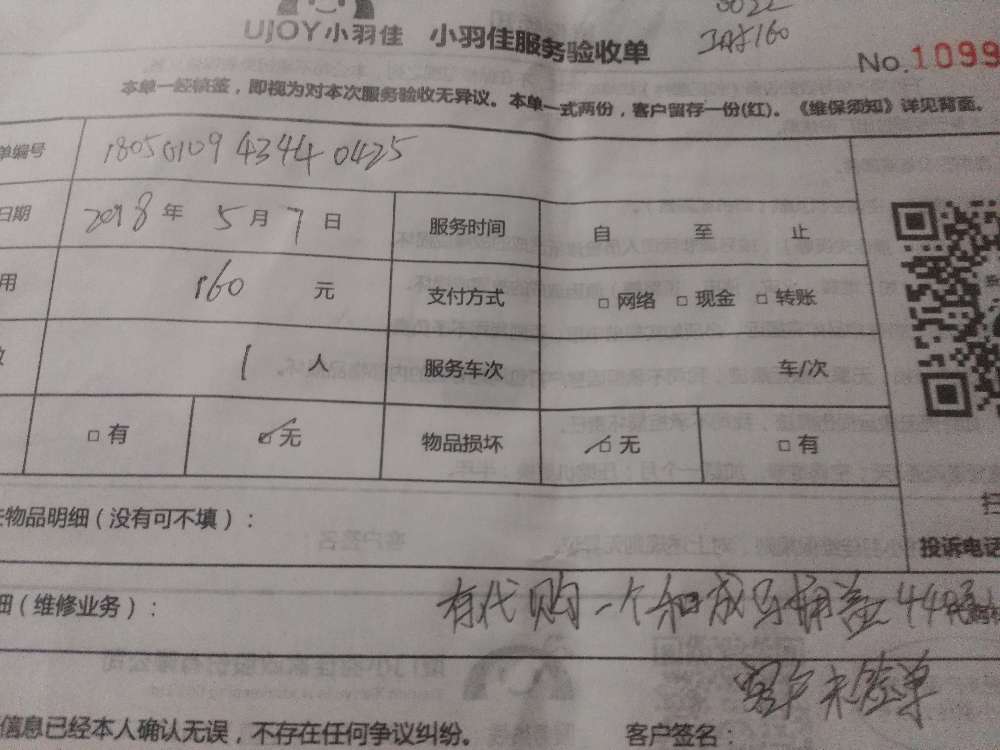 UJOY小羽佳 小羽佳服务验收单
No.1099
本单一经销签,即视为对本次服务验收无异议。本单一式两份,客户留存一份(红)。《维保须知》详见背面。
单编号 18050109 4344 0425
日期 2018 年 5 月 7 日 服务时间 自 至 止
用 160 元 支付方式 □ 网络 □ 现金 □ 转账
1 人 服务车次 车/次
□ 有 ☑ 无 物品损坏 ☑ 无 □ 有
物品明细(没有可不填):
扫
投诉电话
细(维修业务): 有代购一个和成马桶盖 440元
信息已经本人确认无误,不存在任何争议纠纷。 客户签名: 未签单